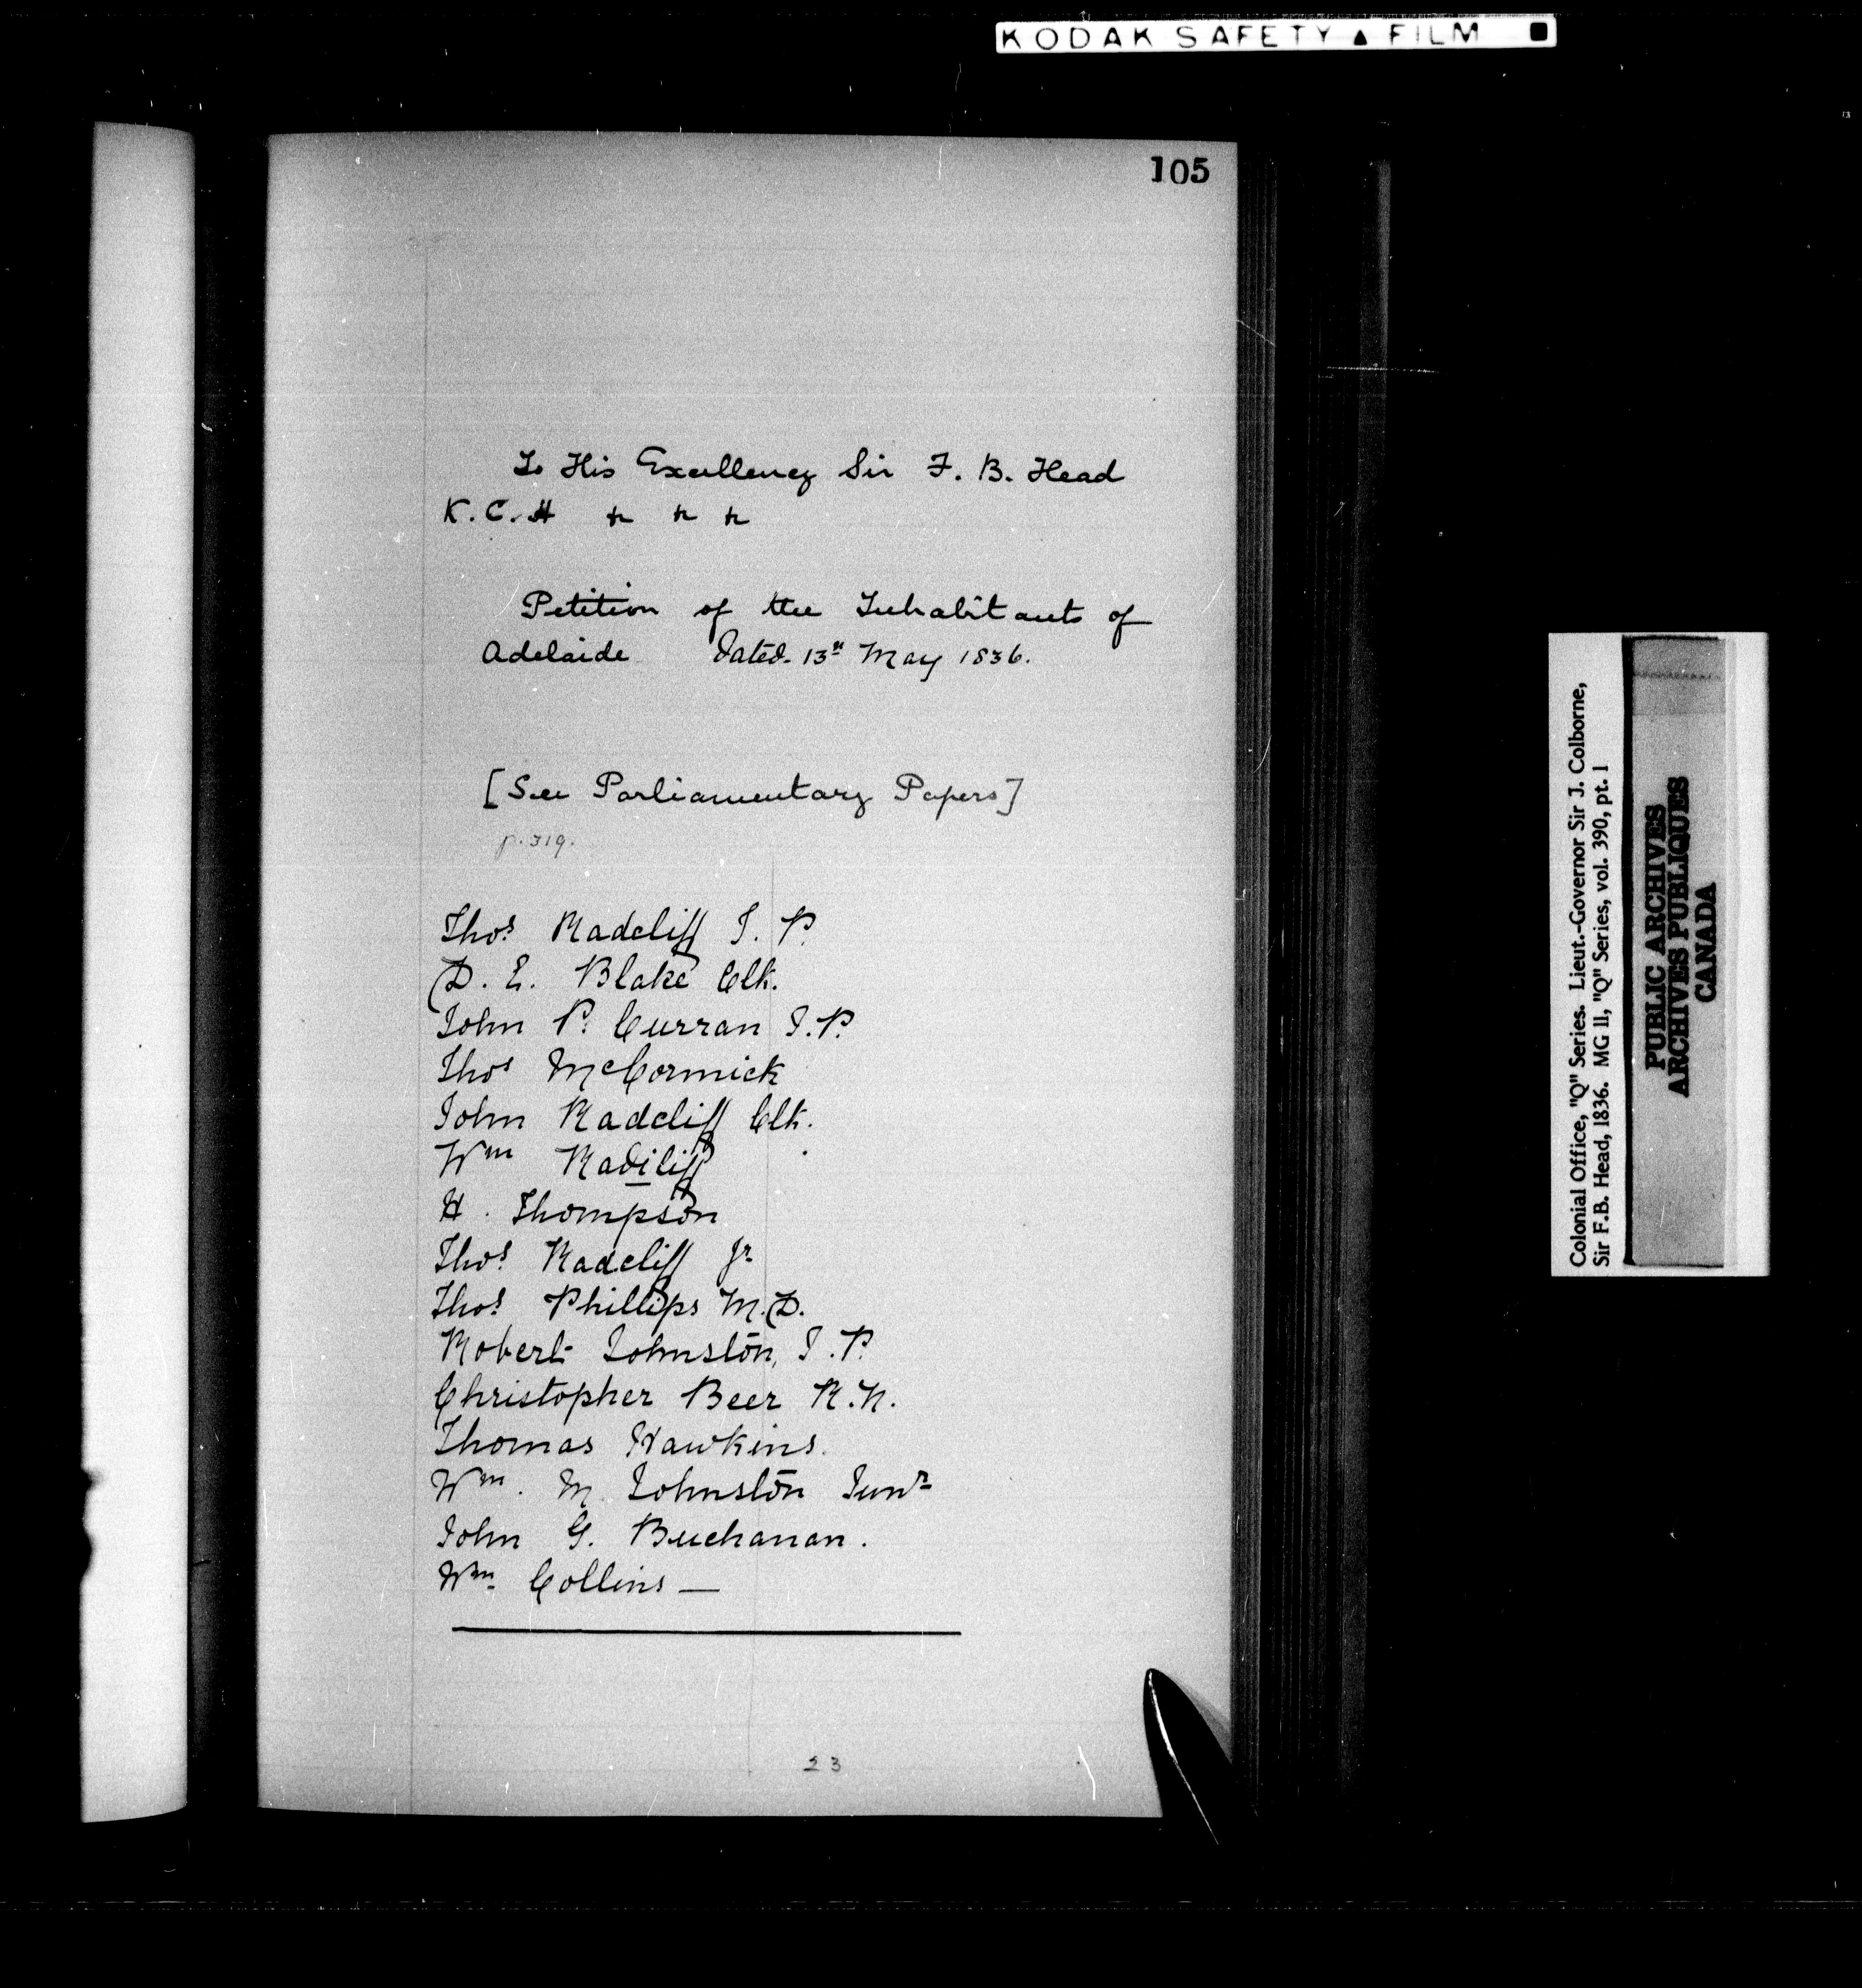 KODAK SAFETY ▲ FILM
105
To His Excellency Sir F. B. Head
K.C.H &c &c &c
Petition of the Inhabitants of
Adelaide Dated 13th May 1836.
[See Parliamentary Papers]
p. 319.
Thos Radcliff J. P.
D. E. Blake Clk.
John P. Curran J.P.
Thos McCormick
John Radcliff Clk.
Wm Radcliff
H. Thompson
Thos Radcliff Jr
Thos Phillips M.D.
Robert Johnston, J.P.
Christopher Beer R.N.
Thomas Hawkins.
Wm. M. Johnston Junr
John G. Buchanan.
Wm. Collins —
23
Colonial Office, "Q" Series. Lieut.-Governor Sir J. Colborne,
Sir F.B. Head, 1836. MG 11, "Q" Series, vol. 390, pt. 1
PUBLIC ARCHIVES
ARCHIVES PUBLIQUES
CANADA